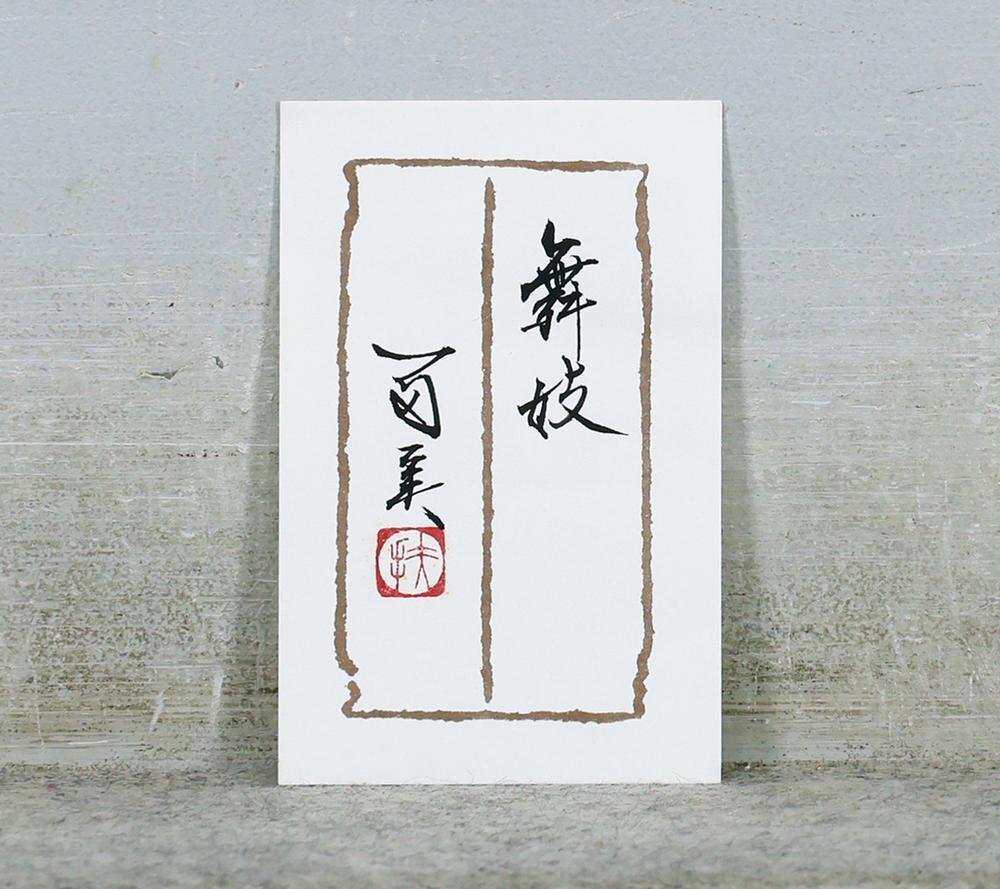 舞妓
百美
扶